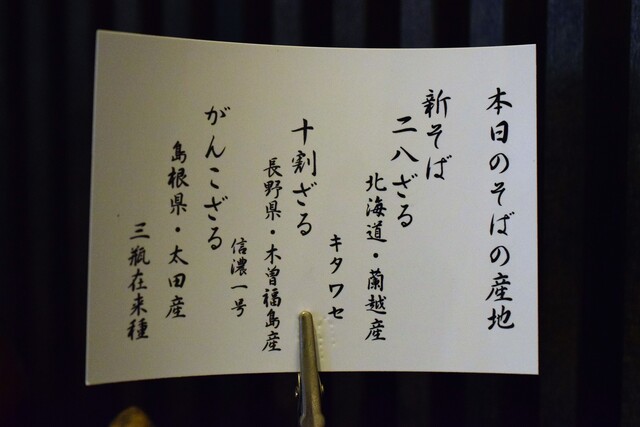 本日のそばの産地
新そば
二八ざる
北海道・蘭越産
キタワセ
十割ざる
長野県・木曽福島産
信濃一号
がんこざる
島根県・太田産
三瓶在来種